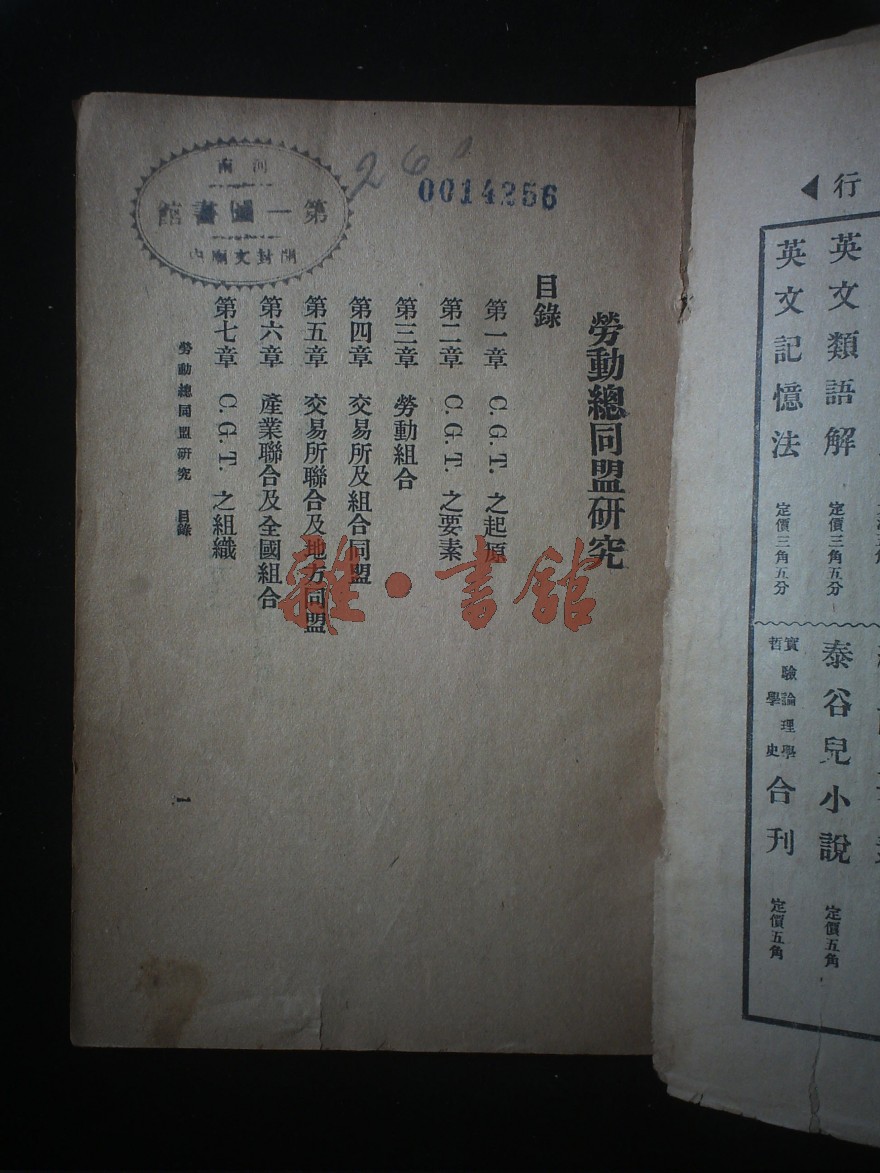 河南
第一圖書館
開封文廟中
260
0014256
勞動總同盟研究
目錄
第一章 C.G.T. 之起源
第二章 C.G.T. 之要素
第三章 勞動組合
第四章 交易所及組合同盟
第五章 交易所聯合及地方同盟
第六章 產業聯合及全國組合
第七章 C.G.T. 之組織
勞動總同盟研究 目錄
1
雜·書館
行
英文類語解 定價三角五分
泰谷兒小說 定價五角
英文記憶法 定價三角五分
實驗論理學
哲學史
合刊 定價五角